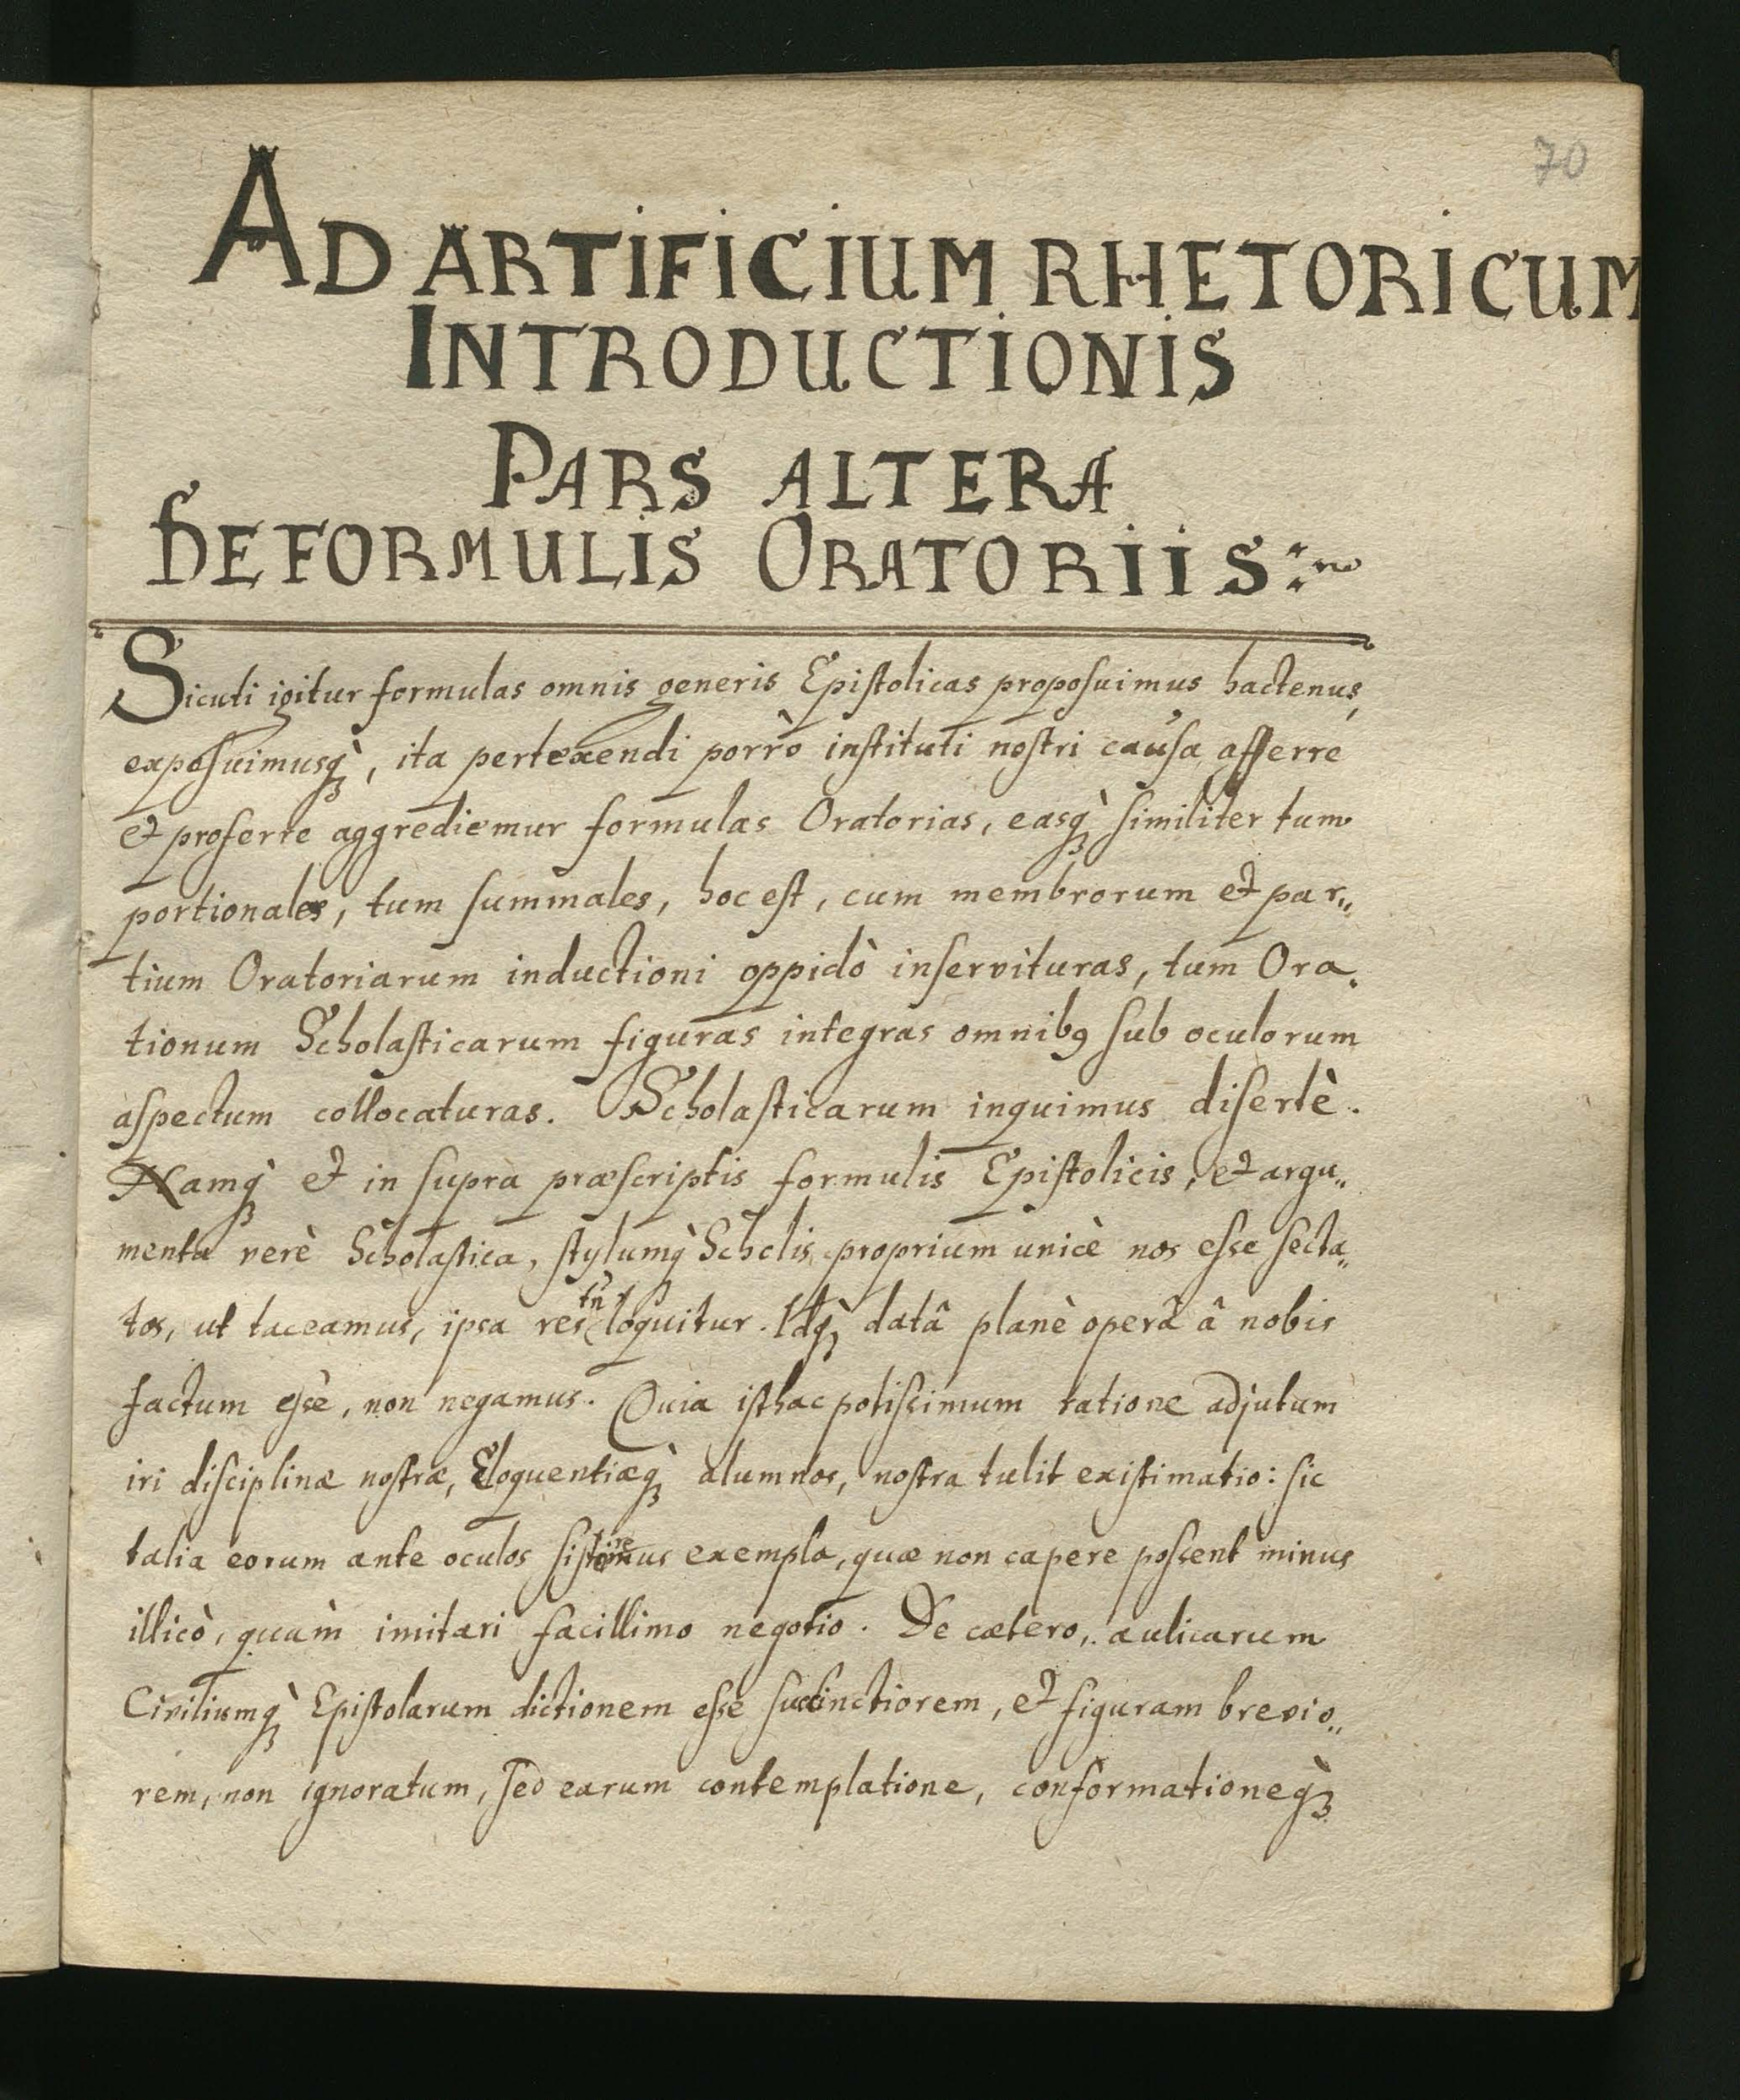 70
AD ARTIFICIUM RHETORICUM
INTRODUCTIONIS
PARS ALTERA
DE FORMULIS ORATORIIS
Sicuti igitur formulas omnis generis Epiſtolicas propoſuimus hactenus,
expoſuimusq̀, ita pertexendi porrò inſtituti noſtri cauſa afferre
et proferre aggrediemur formulas Oratorias, easq̀ ſimiliter tum
portionales, tum ſummales, hoc eſt, cum membrorum et par„
tium Oratoriarum inductioni oppidò inſervituras, tum Ora„
tionum Scholaſticarum figuras integras omnibꝯ ſub oculorum
aſpectum collocaturas. Scholaſticarum inquimus diſertè.
Namq̀ et in ſupra præſcriptis formulis Epiſtolicis, et argu„
menta verè Scholaſtica, ſtylumq̀ Scholis proprium unicè nos eſse ſecta„
tos, ut taceamus, ipsa res tñ loquitur. Idq̀ datâ planè operâ â nobis
factum eſse, non negamus. Quia iſthac potiſsimum ratione adjutum
iri diſciplinæ noſtræ, Eloquentiæq̀ alumnos, noſtra tulit exiſtimatio: ſic
talia eorum ante oculos ſiſteremus exempla, quæ non capere poſsent minus
illicò, quàm imitari facillimo negotio. De cætero, aulicarum
Civiliumq̀ Epiſtolarum dictionem eſse ſuccinctiorem, et figuram brevio„
rem, non ignoratum, ſed earum contemplatione, conformationeq̀